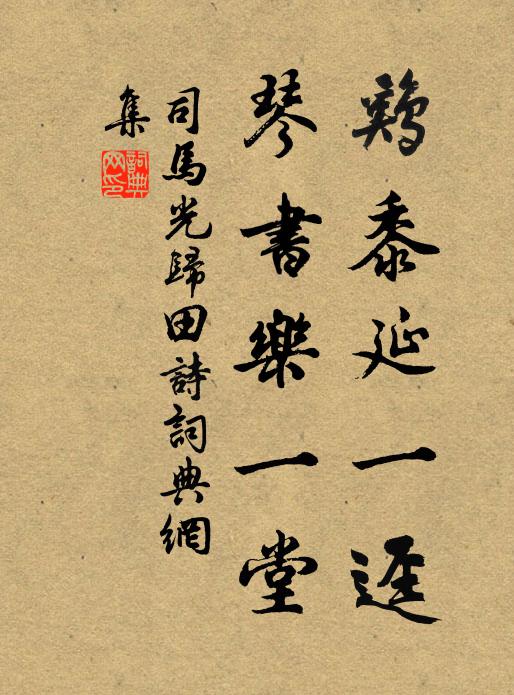 鷄黍延一逕
琴書樂一堂
司馬光歸田詩詞典網
集
詞典网印